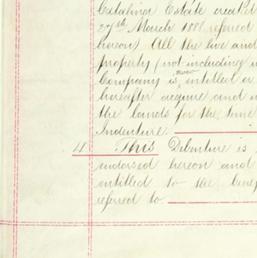 Existing Estate created
27th March 1881 referred
hereon) All the live and
property (not including u
Company is now entitled or
hereafter acquire and u
the lands for the time
Indenture.
4 This Debenture is
endorsed hereon and
entitled to the bene
referred to